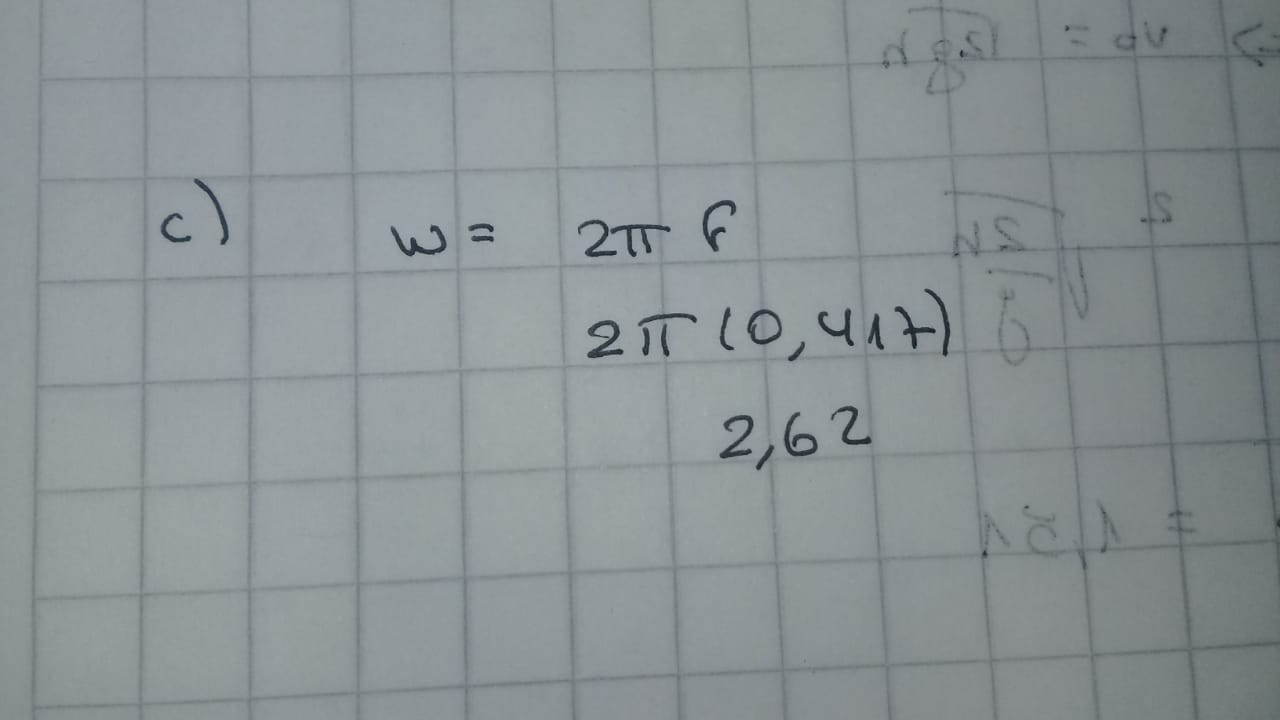 c) w = 2π f
2π (0,417)
2,62